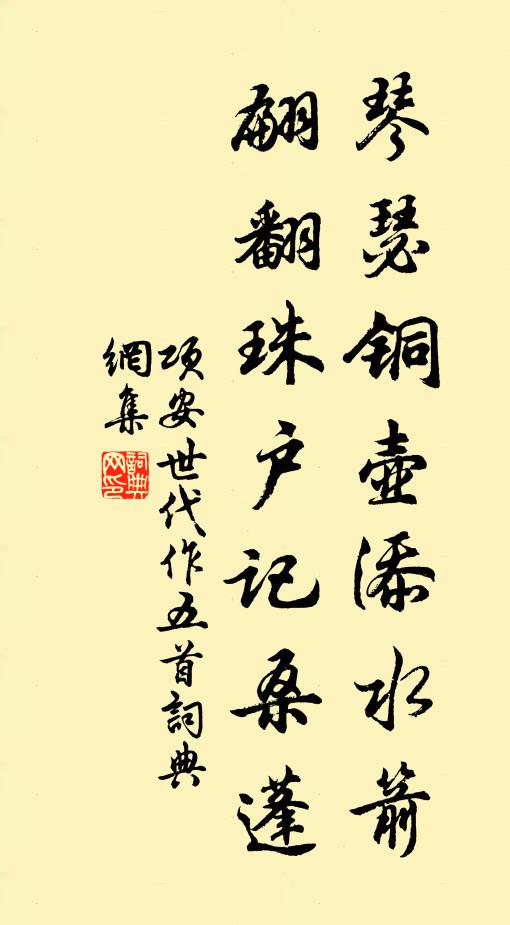 琴瑟铜壶添水箭
翩翻珠户记桑蓬
项安世代作五首詞典
網集
詞典网印